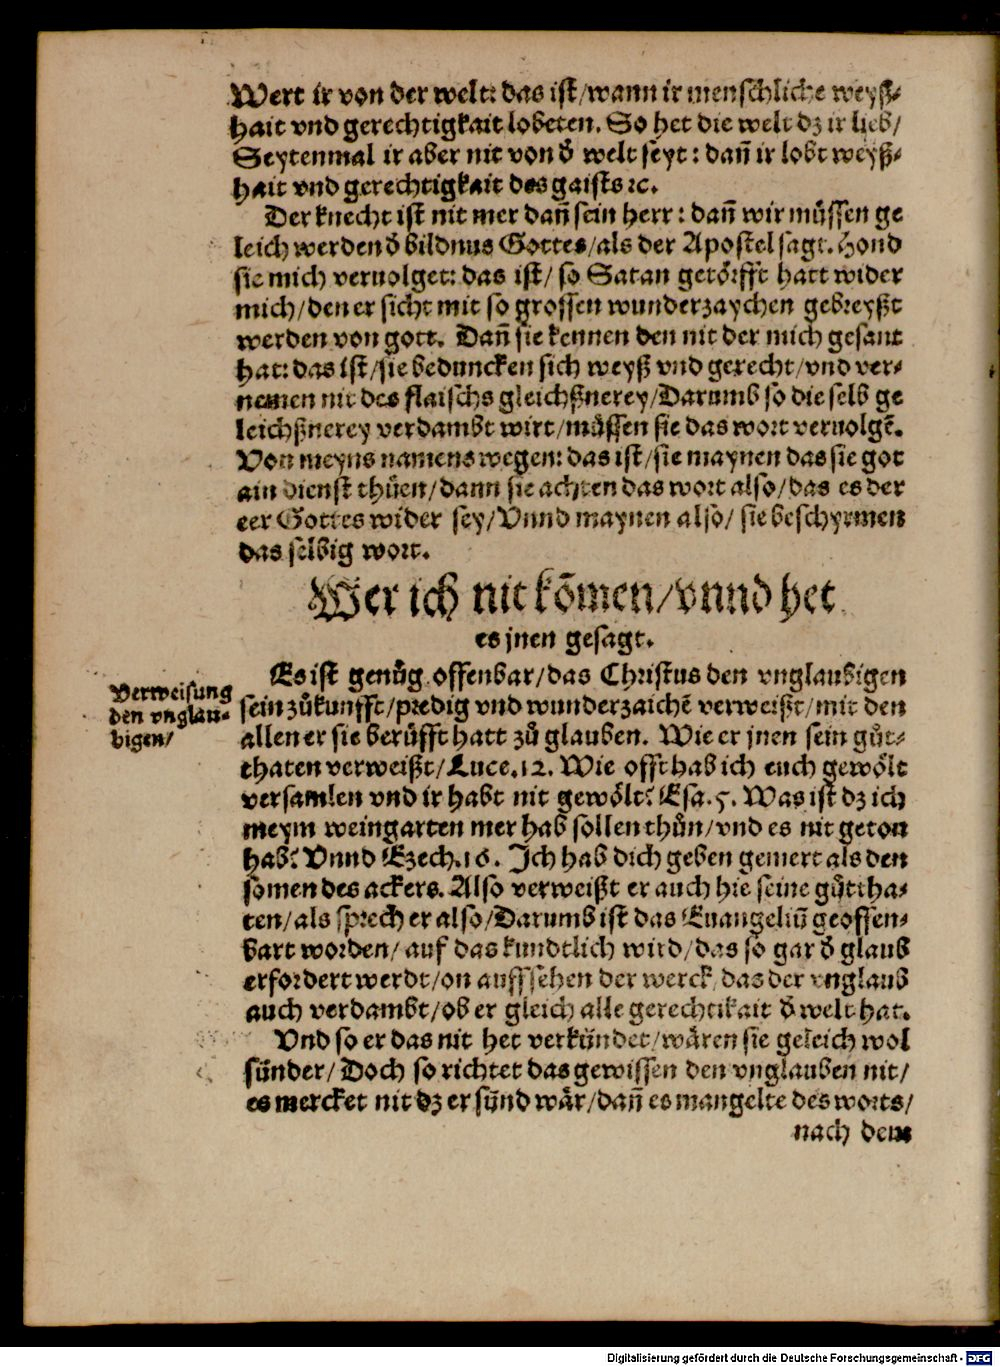 Wert ir von der welt: das ist/wann ir menschliche weyß⸗
hait vnd gerechtigkait lobeten. So het die welt dz ir lieb/
Seytenmal ir aber nit von d̕ welt seyt: dañ ir lobt weyß⸗
hait vnd gerechtigkait des gaists ꝛc.
Der knecht ist nit mer dañ sein herr: dañ wir müssen ge
leich werden d̕ bildnus Gottes/als der Apostel sagt. Hond
sie mich veruolget: das ist/ so Satan getörfft hatt wider
mich/den er sicht mit so grossen wunderzaychen gebreyßt
werden von gott. Dañ sie kennen den nit der mich gesant
hat: das ist/sie beduncken sich weyß vnd gerecht/vnd ver⸗
nemen nit des flaischs gleichßnerey/Darumb so die selb ge
leichßnerey verdambt wirt/müssen sie das wort veruolgẽ.
Von meyns namens wegen: das ist/sie maynen das sie got
ain dienst thüen/dann sie achten das wort also/das es der
eer Gottes wider sey/Vnnd maynen also/ sie beschyrmen
das selbig wort.
Wer ich nit kõmen/vnnd het
es jnen gesagt.
Es ist genůg offenbar/das Christus den vnglaubigen
Verweisung
den vnglau⸗
bigen/
sein zůkunfft/predig vnd wunderzaichẽ verweißt/mit den
allen er sie berüfft hatt zů glauben. Wie er jnen sein gůt⸗
thaten verweißt/Luce.12. Wie offt hab ich euch gewölt
versamlen vnd ir habt nit gewölt? Esa.5. Was ist dz ich
meym weingarten mer hab sollen thůn/vnd es nit geton
hab? Vnnd Ezech.16. Ich hab dich geben gemert als den
somen des ackers. Also verweißt er auch hie seine gůttha⸗
ten/als sprech er also/Darumb ist das Euangeliũ geoffen⸗
bart worden/ auf das kundtlich wird/das so gar d̕ glaub
erfordert werdt/on auffsehen der werck/das der vnglaub
auch verdambt/ob er gleich alle gerechtikait d̕ welt hat.
Vnd so er das nit het verkündet/wären sie geleich wol
sünder/Doch so richtet das gewissen den vnglauben nit/
es mercket nit dz er sünd wär/dañ es mangelte des worts/
nach dem
Digitalisierung gefördert durch die Deutsche Forschungsgemeinschaft - DFG